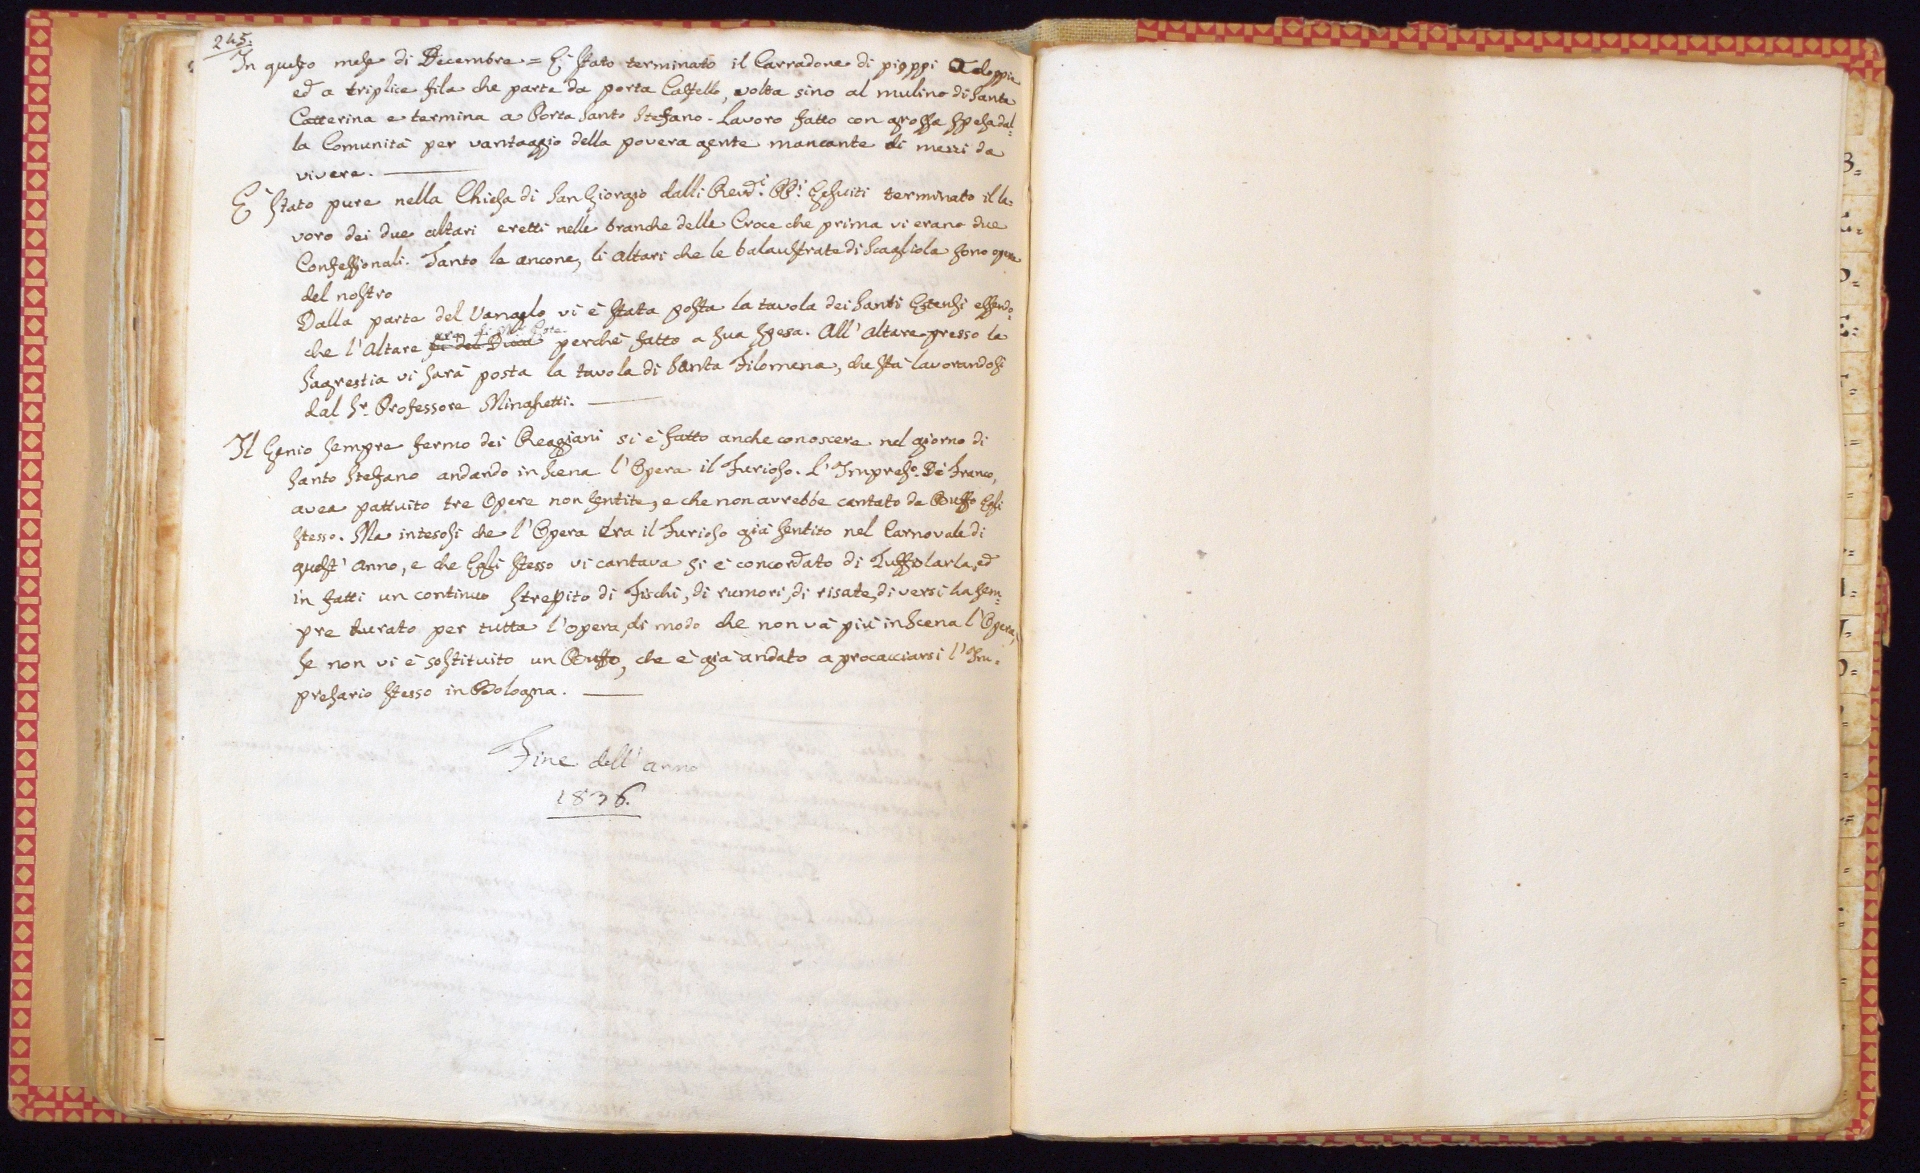 245.
In questo mese di Decembre = È stato terminato il Carradone di pioppi a doppia
ed a triplice fila che parte da porta Castello, volta sino al mulino di Santa
Catterina e termina a Porta Santo Stefano. Lavoro fatto con grossa spesa dal=
la Comunità per vantaggio della povera gente mancante di mezzi da
vivere.
È stato pure nella Chiesa di San Giorgio dalli Revd.i PP.i Gesuiti terminato il la=
voro dei due altari eretti nelle branche della Croce che prima vi erano due
Confessionali. Tanto le ancone, li altari che le balaustrate di Scagliola sono opera
del nostro
Dalla parte del Vangelo vi è stata posta la tavola dei Santi Estensi essendo=
che l'Altare perchè fatto a sua spesa. All'Altare presso la
Sagrestia vi sarà posta la tavola di Santa Filomena, che sta lavorandosi
dal Sr. Professore Minghetti.
Il Genio sempre fermo dei Reggiani si è fatto anche conoscere nel giorno di
Santo Stefano andando in Scena l'Opera il Furioso. L'Impreso. De Franco,
avea pattuito tre Opere non sentite, e che non avrebbe cantato da Buffo Egli
stesso. Ma intesosi che l'Opera era il Furioso già sentito nel Carnovale di
quest'anno, e che Egli stesso vi cantava si è concordato di Zuffolarla, ed
in fatti un continuo strepito di Fischi, di rumori, di risate, di versi ha sem=
pre durato per tutta l'opera, di modo che non và più in Scena l'Opera,
se non vi è sostituito un Buffo, che è già andato a procacciarsi l'Im=
presario stesso in Bologna.
Fine dell'anno
1836.